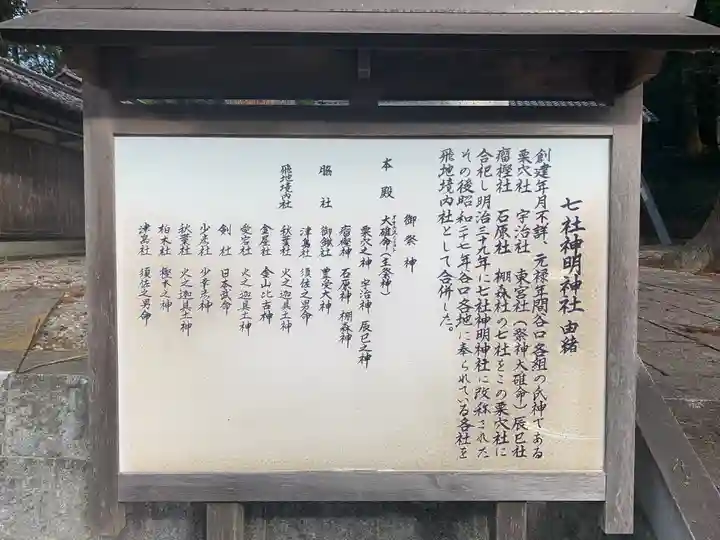 七社神明神社 由緒
創建年月不詳、元禄年間谷口各組の氏神である
粟穴社 宇治社 東宮社(祭神大碓命)辰巳社
瘤樫社 石原社 棚森社の七社をこの粟穴社に
合祀し明治三十九年に七社神明神社に改称された
その後昭和二十七年谷口各地に奉られている各社を
飛地境内社として合併した。
御祭神
本殿 大碓命(主祭神)
粟穴之神 宇治神 辰巳之神
瘤樫神 石原神 棚森神
脇社 御鍬社 豊受大神
津島社 須佐之男命
飛地境内社 秋葉社 火之迦具土神
金屋社 金山比古神
愛宕社 火之迦具土神
剣社 日本武命
少彦社 少彦志神
秋葉社 火之迦具土神
柏木社 樫木之神
津島社 須佐之男命